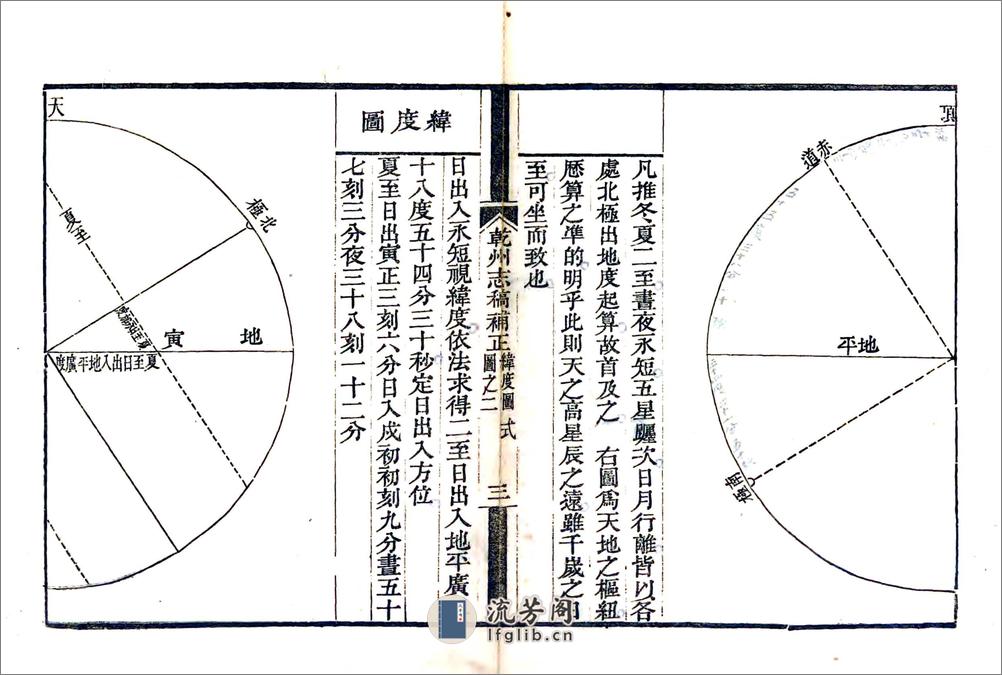 頂
赤道
地平
南極
凡推冬夏二至晝夜永短五星躔次日月行離皆以各
處北極出地度起算故首及之　右圖爲天地之樞紐
歷算之準的明乎此則天之高星辰之遠雖千歲之日
至可坐而致也
乾州志稿補正
緯度圖
圖之二
式
三
緯度圖
日出入永短視緯度依法求得二至日出入地平廣
十八度五十四分三十秒定日出入方位
夏至日出寅正三刻六分日入戌初初刻九分晝五十
七刻三分夜三十八刻一十二分
北極
地
寅
夏至
夏至日出入地平廣度
天
流芳閣
lfglib.cn